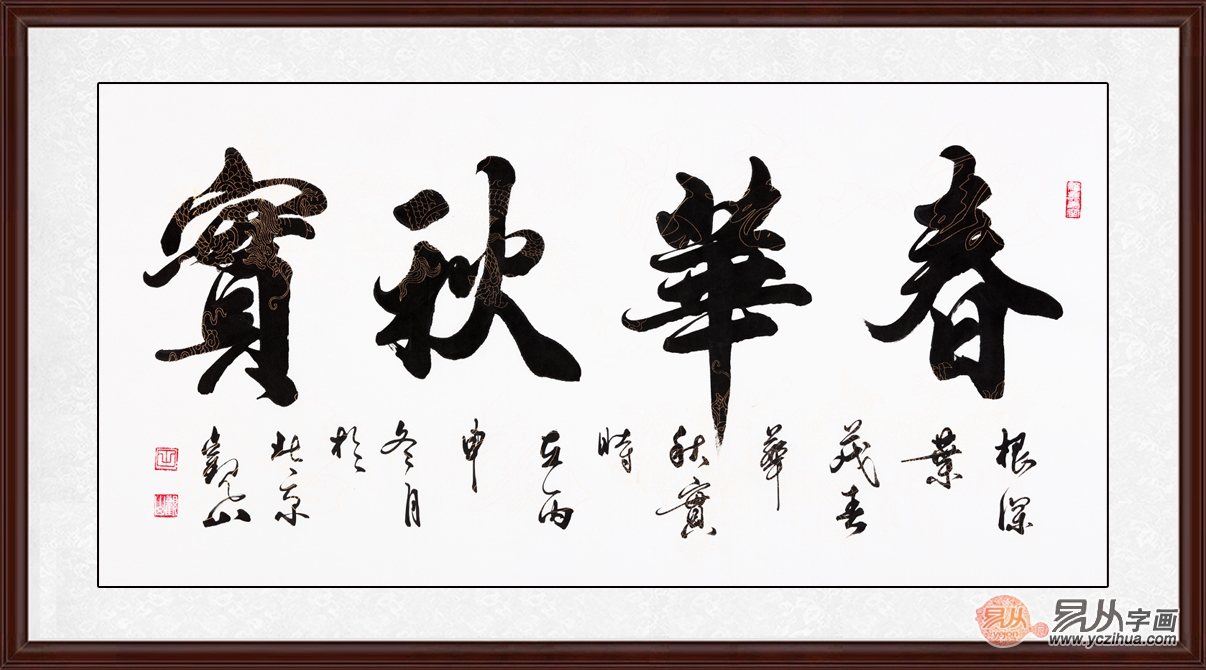 春華秋實
根深
葉
茂春
華
秋實
時
在丙
申
冬月
於
北京
觀山
易从字画
yejon
www.yczihua.com